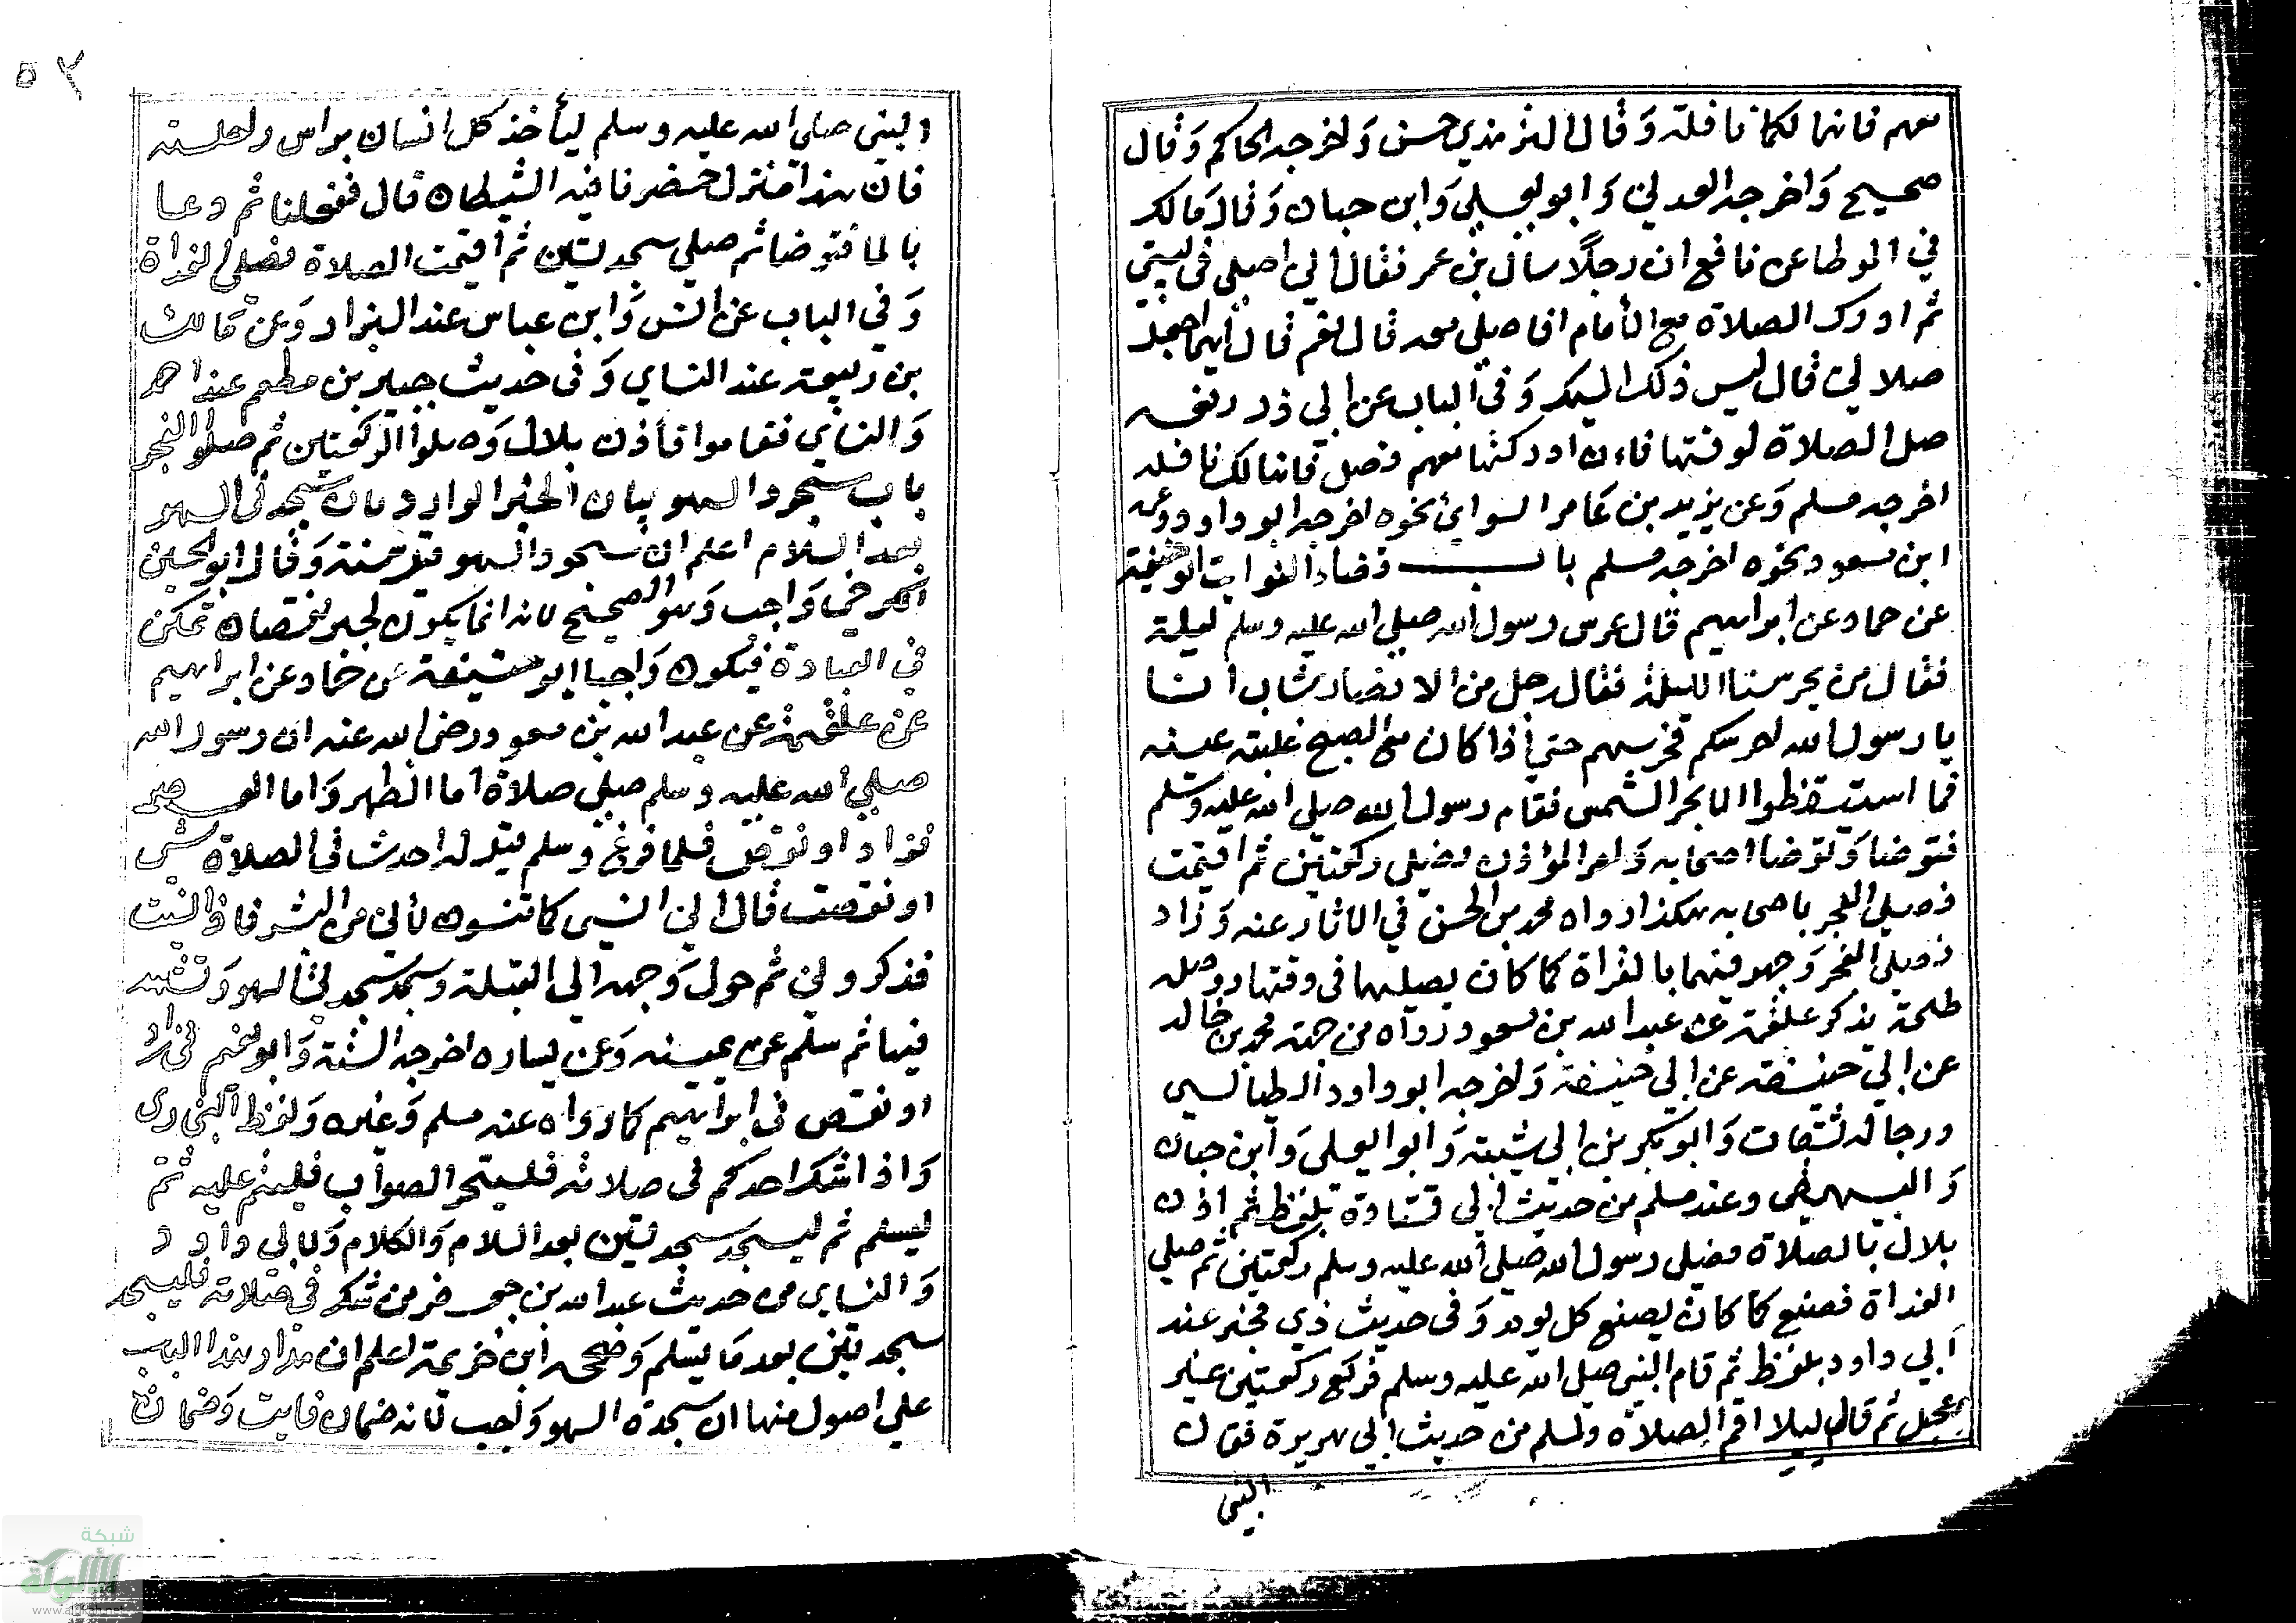 معهم فانها لكما نافلة وقال الترمذي حسن واخرجه الحاكم وقال
صحيح واخرجه العدني وابو يعلي وابن حبان وقال مالك
في الموطا عن نافع ان رجلا سال بن عمر فقال اني اصلي في بيتي
ثم ادرك الصلاة مع الأمام افاصلي معه قال نعم قال أيهما اجعل
صلاتي قال ليس ذلك اليك وفي الباب عن ابي ذر رفعه
صل الصلاة لوقتها فان ادركتها معهم فصل فانها لك نافله
اخرجه مسلم وعن يزيد بن عامر السوائي نحوه اخرجه ابو داود وعن
ابن مسعود نحوه اخرجه مسلم باب قضاء الفوايت ابو حنيفة
عن حماد عن ابراهيم قال عرس رسول الله صلي الله عليه وسلم ليلة
فقال من يحرسنا الليلة فقال رجل من الانصار شاب انا
يا رسول الله احرسكم فحرسهم حتي أذا كان مع الصبح غلبته عينه
فما استيقظوا الا بحر الشمس فقام رسول الله صلي الله عليه وسلم
فتوضا وتوضا اصحابه وامر المؤذن فصلي ركعتين ثم اقيمت
فصلي الفجر باصحابه هكذا رواه محمد بن الحسن في الاثار عنه وزاد
فصلي الفجر وجهر فيها بالقراة كما كان يصليها في وقتها ووصله
طلحة بذكر علقمة عن عبد الله بن مسعود رواه من جهة محمد بن خالد
عن ابي حنيفة عن ابي حنيفة واخرجه ابو داود الطيالسي
ورجاله ثقات وابو بكر بن ابي شيبة وابو اليعلي وابن حبان
والبيهقي وعند مسلم من حديث ابي قتادة بلفظ ثم اذن
بلال بالصلاة فصلي رسول الله صلي الله عليه وسلم ركعتين ثم صلي
الغداة فصنع كما كان يصنع كل يوم وفي حديث ذي مخبر عند
أبي داود بلفظ ثم قام النبي صلي الله عليه وسلم فركع ركعتين غير
عجل ثم قال لبلال اقم الصلاة ولمسلم من حديث ابي هريرة فقال
النبي
٥٢
النبي صلي الله عليه وسلم ليأخذ كل انسان براس راحلته
فان هذا منزل حضرنا فيه الشيطان قال ففعلنا ثم دعا
بالما فتوضا ثم صلي سجدتين ثم أقيمت الصلاة فصلي الغداة
وفي الباب عن انس وابن عباس عند البزار وعن مالك
بن ربيعة عند النساي وفي حديث جبير بن مطعم عند احمد
والنساي فقاموا فأذن بلال وصلوا الركعتين ثم صلوا الفجر
باب سجود السهو بيان الخبر الوارد بان سجدتي السهو
بعد السلام اعلم ان سجود السهو قيل سنة وقال ابو الحسن
الكرخي واجب وهو الصحيح لانه انما يكون لجبر نقصان تمكن
في العبادة فيكون واجبا ابو حنيفة عن حماد عن ابراهيم
عن علقمة عن عبد الله بن مسعود رضي الله عنه ان رسول الله
صلي الله عليه وسلم صلي صلاة اما الظهر واما العصر
فزاد او نقص فلما فرغ وسلم قيل له احدث في الصلاة شي
او نقصت قال اني انسي كما تنسون
فذكروني ثم حول وجهه الي القبلة وسجد سجدتي السهو وتشهد
فيها ثم سلم عن يمينه وعن يساره اخرجه الستة وابو نعيم في زاد
او نقص في ابراهيم كما رواه عنه مسلم وغيره ولفظ البخاري
واذا شك احدكم في صلاته فليتحر الصواب فليتم عليه ثم
ليسلم ثم ليسجد سجدتين بعد السلام والكلام ولابي داود
والنساي من حديث عبد الله بن جعفر من شك في صلاته فليسجد
سجدتين بعد ما يسلم وصححه ابن خزيمة اعلم ان مدار هذا الباب
علي اصول منها ان سجدة السهو واجب لانه ضمان فايت وضمان
شبكة
الألوكة
www.alukah.net